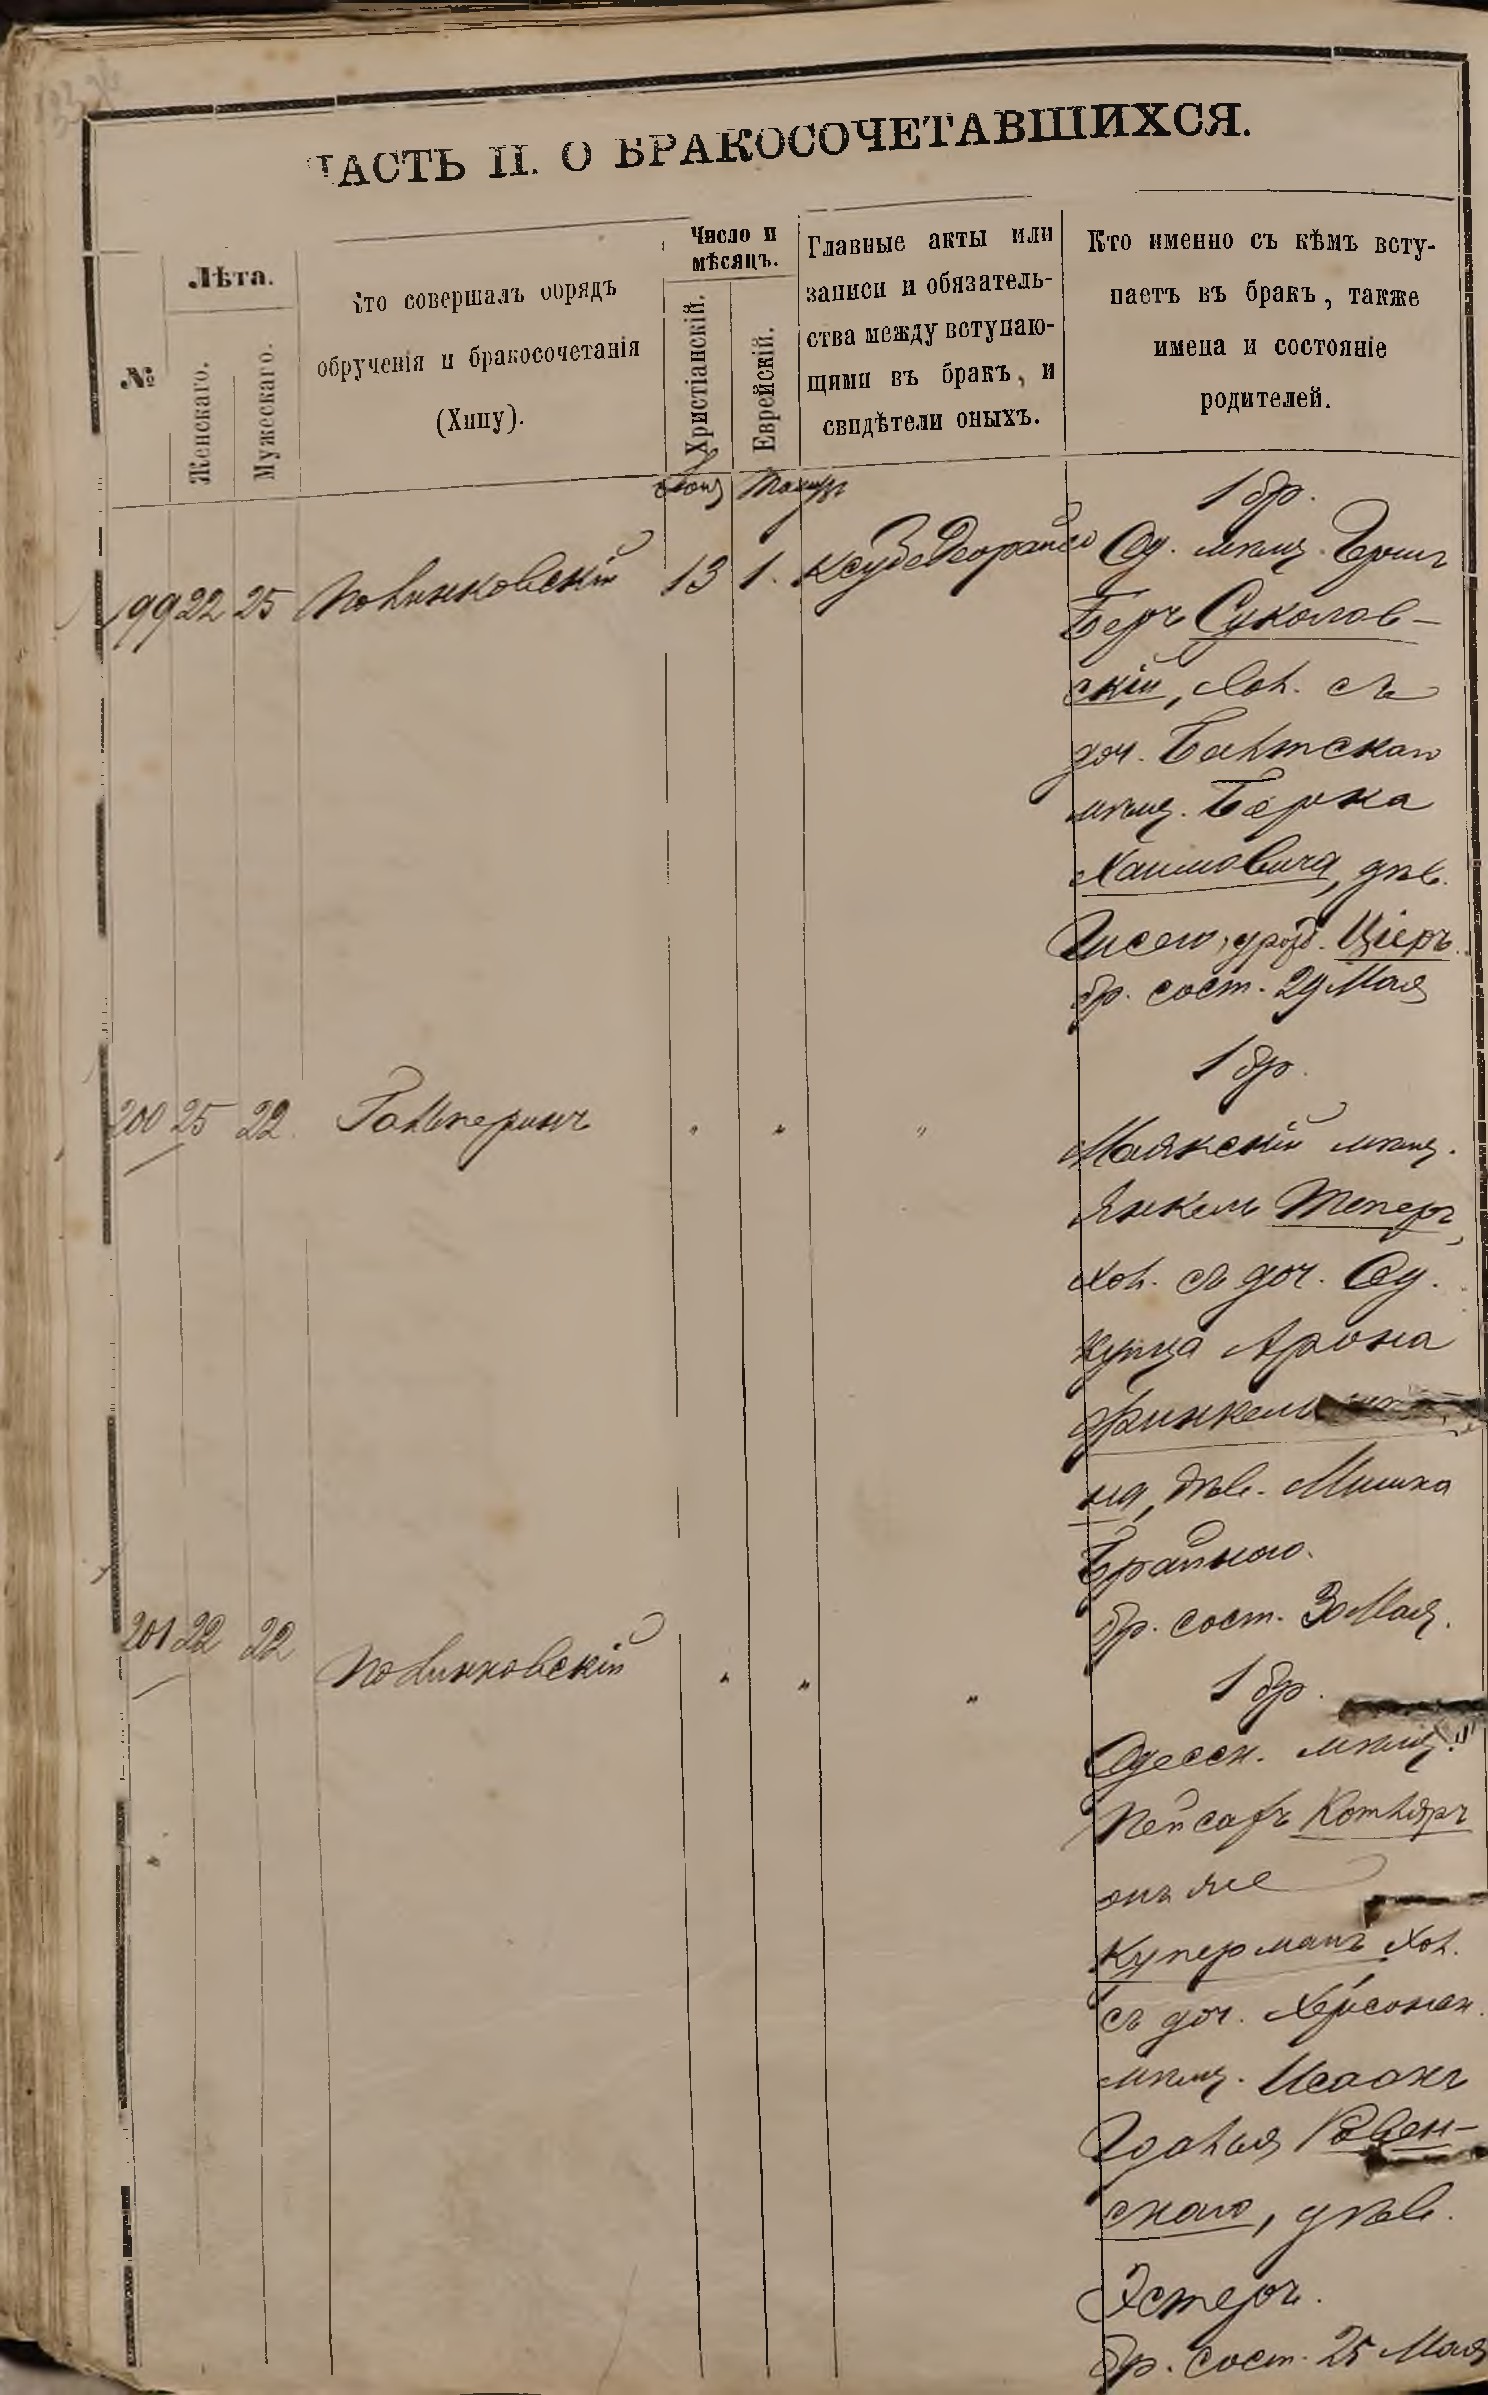 ЧАСТЬ II. О БРАКОСОЧЕТАВШИХСЯ.
№
Лѣта.
Женскаго.
Мужескаго.
Кто совершалъ обрядъ
обрученія и бракосочетанія
(Хипу).
Число и
мѣсяцъ.
Христіанскій.
Еврейскій.
Главные акты или
записи и обязатель-
ства между вступаю-
щими въ бракъ, и
свидѣтели оныхъ.
Кто именно съ кѣмъ всту-
паетъ въ бракъ, также
имена и состояніе
родителей.
199 22 25 Полинковскій 13 1.
1 бр.
Од. мѣщ. Герш
Беръ Суколов-
скій, хол. съ
доч. Балтскаго
мѣщ. Берка
Хаимовича, дѣв.
Гисею, урожд. Ціеръ.
бр. сост. 29 Мая
200 25 22 Гальперинъ " " "
1 бр.
Маякскій мѣщ.
Янкель Теперъ,
хол. съ доч. Од.
купца Арона
Финкель
на, дѣв. Мишка
Брайною.
бр. сост. 30 Мая.
201 22 22 Полинковскій " " "
1 бр.
Одесск. мѣщ.
Пейсахъ Котляръ
онъ же
Куперманъ хол.
съ доч. Херсонск.
мѣщ. Исаакъ
Гдалья Ровен-
скаго, дѣв.
Эстеръ.
бр. сост. 25 Мая